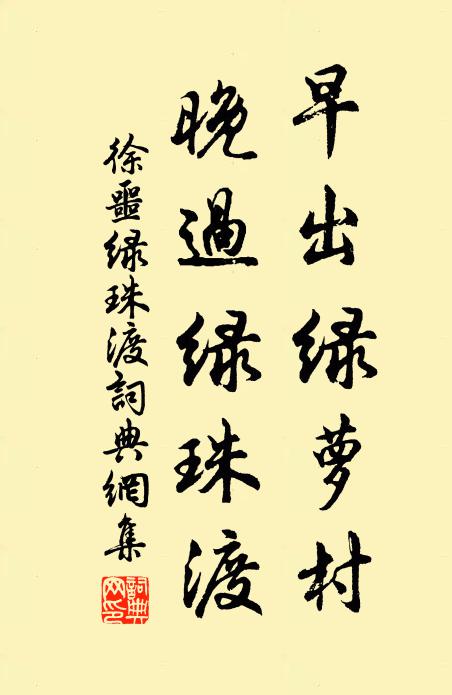 早出绿萝村
晚過绿珠渡
徐噩绿珠渡詞典網集
詞典网印